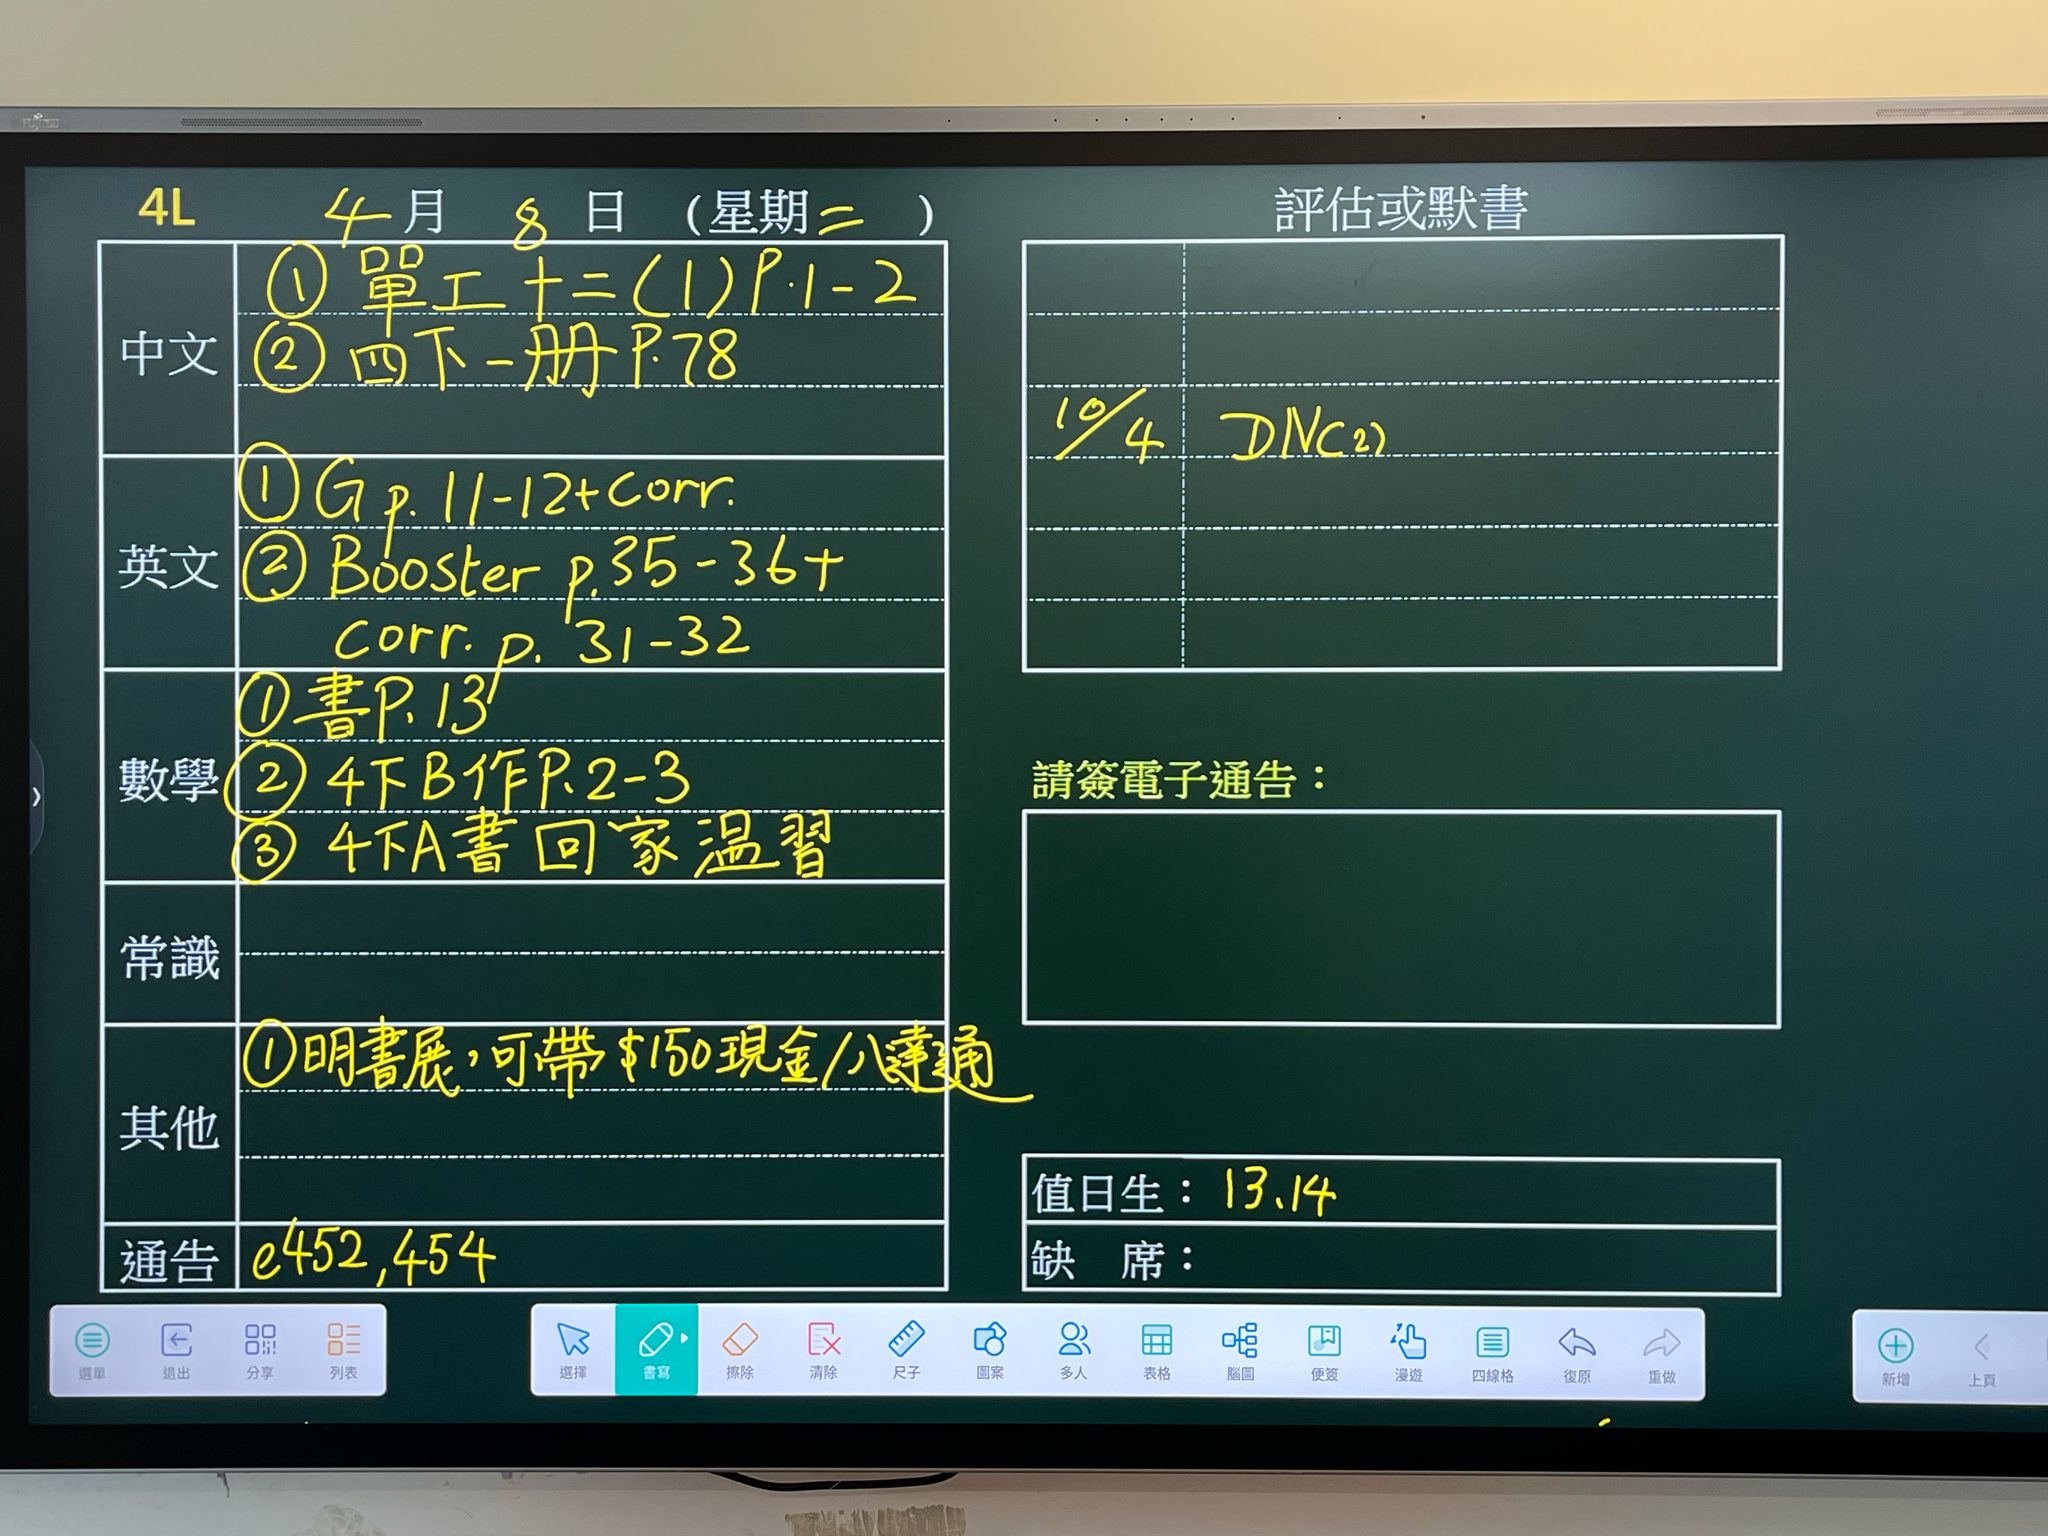 FUJITSU
4L 4月 8日 (星期二)
中文
① 單工十二(1)P.1-2
② 四下一册P.78
英文
① G p. 11-12+corr.
② Booster p.35-36+
corr. p. 31-32
數學
① 書P.13
② 4下B作P.2-3
③ 4下A書回家温習
常識
其他
① 明書展，可帶$150現金/八達通
通告
e452,454
評估或默書
10/4 DN(2)
請簽電子通告：
值日生：13.14
缺 席：
選單
退出
分享
列表
選擇
書寫
擦除
清除
尺子
圖案
多人
表格
腦圖
便簽
漫遊
四線格
復原
重做
新增
上頁